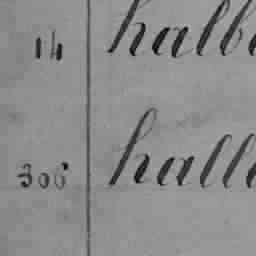 14 halb
306 hall